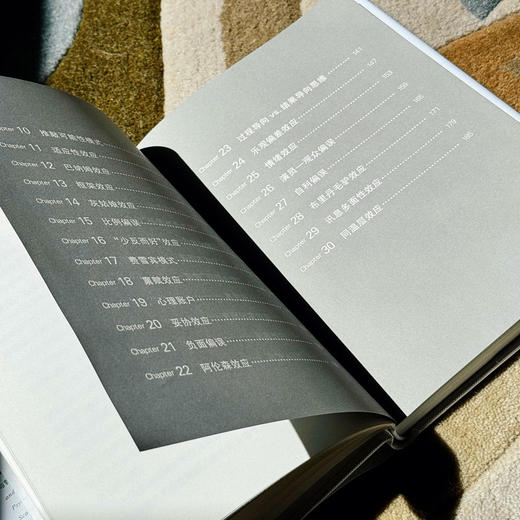 Chapter 10 推敲可能性模式
Chapter 11 适应性效应
Chapter 12 巴纳姆效应
Chapter 13 框架效应
Chapter 14 灰姑娘效应
Chapter 15 比例偏误
Chapter 16 “少反而好”效应
Chapter 17 费雪宾模式
Chapter 18 禀赋效应
Chapter 19 心理账户
Chapter 20 妥协效应
Chapter 21 负面偏误
Chapter 22 阿伦森效应
Chapter 23 过程导向 vs. 结果导向思维 141
Chapter 24 乐观偏差效应 147
Chapter 25 情绪效应 153
Chapter 26 演员—观众偏误 159
Chapter 27 自利偏误 165
Chapter 28 布里丹毛驴效应 171
Chapter 29 讯息多面性效应 179
Chapter 30 同温层效应 185
and